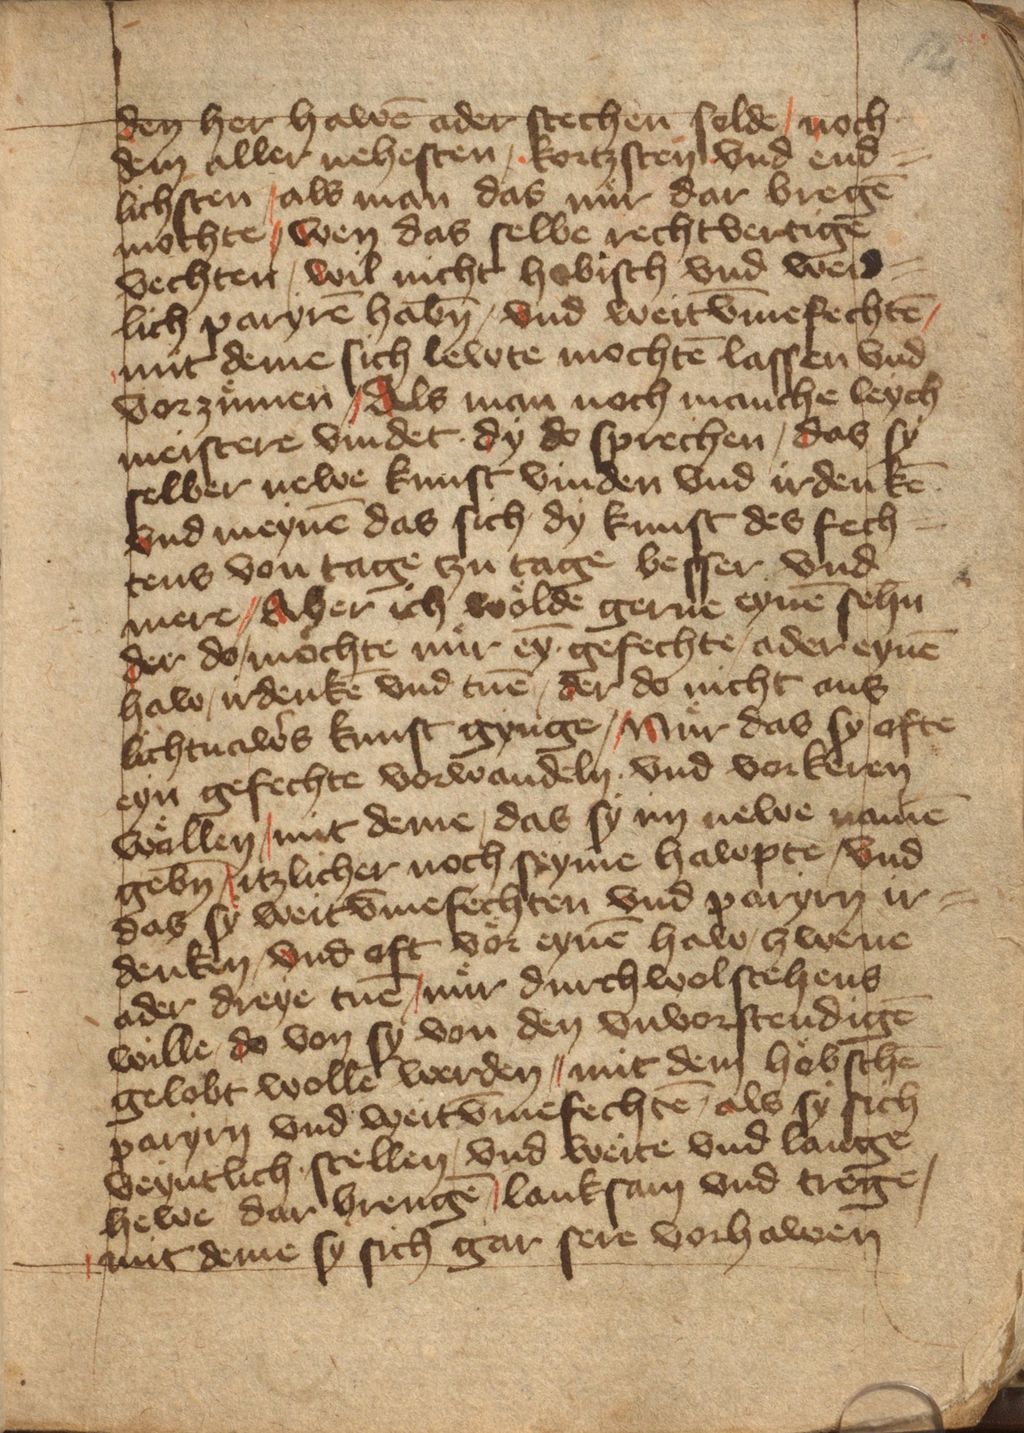 den her hawē ader stechen solde / noch
dem aller nehesten / kortzsten vnd end=
lichsten / als man das nür dar bregē
mochte / wen das selbe rechtvertigē
vechten / wil nicht hobisch vnd weid=
lich paryrē habn̄ / vnd weit v̄mefechtē /
mit deme sich lewte mochtē lassen vnd
vorzümen / Als man noch manche leych
meistere vindet · dy do sprechen / das sy
selber newe kunst vinden vnd irdenkē
vnd meynē das sich dy kunst des fech=
tens von tage zu tage besser vnd
mere // Aber ich wölde gerne eynē sehn
der do möchte nür ey̅ · gefechte / ader eynē
haw / irdenkē vnd tuē / der do nicht aus
lichtnawers kunst gynge / Nür das sy ofte
eyn gefechte vorwandeln · vnd vorkeren
wöllen / mit deme / das sy im newe namē
gebn̄ / itzlicher noch seyme hawpte / vnd
das sy weit v̄mefechten vnd paryrn ir=
denken / vnd oft vör eynē haw / zwene
ader dreye tuē / nür durch wolstehens
wille / do von sy von den vnvorstendigē
gelobt wollē werden // mit dem höbschē
paryrn vnd weit v̄mefechtē / als sy sich
veyntlich · stellen / vnd weite vnd lange
hewe dar brengē / lanksam vnd trege /
mit deme sy sich gar sere vorhawen